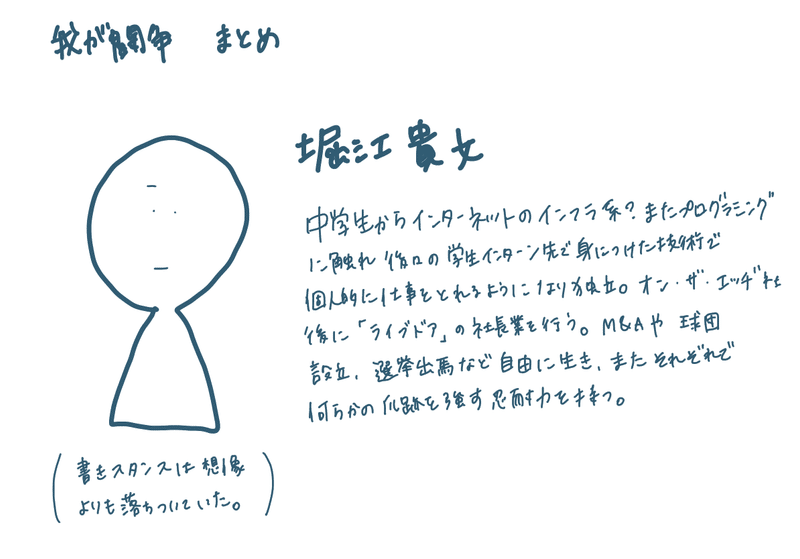 我が闘争 まとめ
堀江貴文
中学生からインターネットのインフラ系?またプログラミング
に触れ 後々の学生インターン先で身につけた技術で
個人的に仕事をとれるようになり独立。オン・ザ・エッヂ社
後に「ライブドア」の社長業を行う。M&Aや 球団
設立、選挙出馬など自由に生き、またそれぞれで
何らかの 跡を 強す忍耐力を持つ。
(書きスタンスは想像
よりも落ちついていた。)